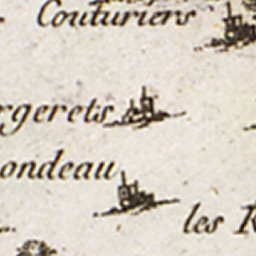 Couturiers
rgerets
ondeau
les